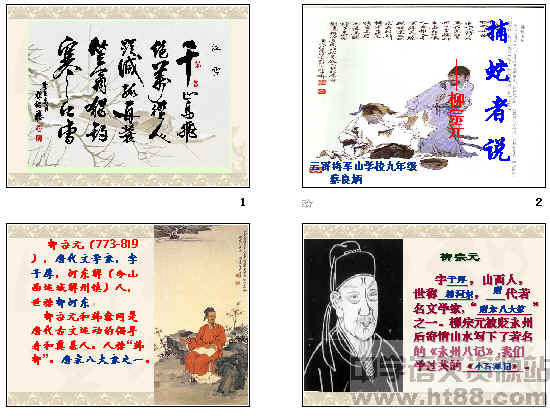 江雪
千山鸟飞
绝万径人
踪灭孤舟蓑
笠翁独钓
寒江雪
1
捕蛇者说
——柳宗元
将军山学校九年级
2
柳宗元(773-819
),唐代文学家,字
子厚,河东解(今山
西运城解州镇)人,
世称柳河东。
柳宗元和韩愈同是
唐代古文运动的领导
者和奠基人。人称“韩
柳”。唐宋八大家之一。
柳宗元
字子厚,山西人,
世称 柳河东,唐代著
名文学家,“唐宋八大家”
之一。柳宗元被贬永州
后寄情山水写下了著名
的《永州八记》,我们
学过其中的《小石潭记》。
中学语文资源站
www.ht88.com